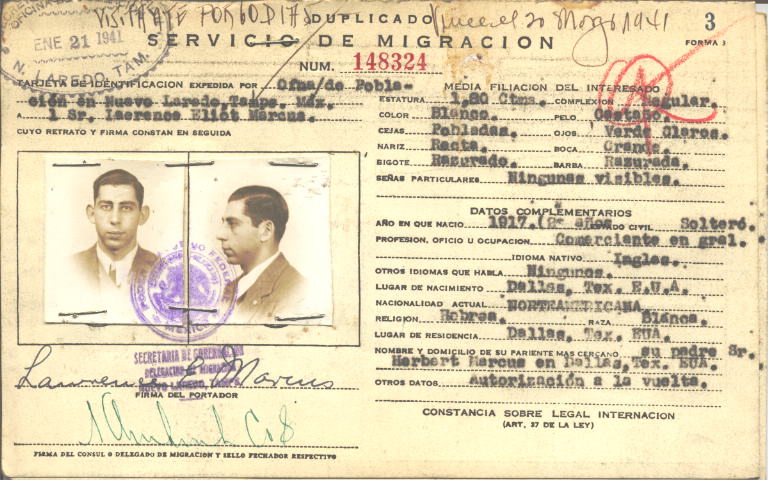 VISITANTE POR 60 DIAS
DUPLICADO
Vence el 20 Marzo 1941
3
SERVICIO DE MIGRACION
FORMA
ENE 21 1941
N. LAREDO, TAM.
NUM. 148324
TARJETA DE IDENTIFICACION EXPEDIDA POR Ofna/de Pobla-
ción en Nuevo Laredo, Tamps. Méx.
A 1 Sr. Lawrence Eliot Marcus.
CUYO RETRATO Y FIRMA CONSTAN EN SEGUIDA
PODER EJECUTIVO FEDERAL
MEXICO
SECRETARIA DE GOBERNACION
DELEGACION DE MIGRACION
NUEVO LAREDO, TAMPS.
Lawrence E. Marcus
FIRMA DEL PORTADOR
FIRMA DEL CONSUL O DELEGADO DE MIGRACION Y SELLO FECHADOR RESPECTIVO
MEDIA FILIACION DEL INTERESADO
ESTATURA 1.80 Ctms. COMPLEXION Regular.
COLOR Blanco. PELO Castaño.
CEJAS Pobladas. OJOS Verde Claros.
NARIZ Recta. BOCA Grande.
BIGOTE Razurado. BARBA Razurada.
SEÑAS PARTICULARES Ningunas visibles.
DATOS COMPLEMENTARIOS
AÑO EN QUE NACIO 1917. ESTADO CIVIL Solteró.
PROFESION, OFICIO U OCUPACION Comerciante en gral.
IDIOMA NATIVO Ingles.
OTROS IDIOMAS QUE HABLA Ningunos.
LUGAR DE NACIMIENTO Dallas, Tex. E.U.A.
NACIONALIDAD ACTUAL NORTEAMERICANA
RELIGION Hebrea. RAZA Blanca.
LUGAR DE RESIDENCIA Dallas, Tex. EUA.
NOMBRE Y DOMICILIO DE SU PARIENTE MAS CERCANO su padre Sr.
Herbert Marcus en Dallas, Tex. EUA.
OTROS DATOS Autorización a la vuelta.
CONSTANCIA SOBRE LEGAL INTERNACION
(ART. 37 DE LA LEY)